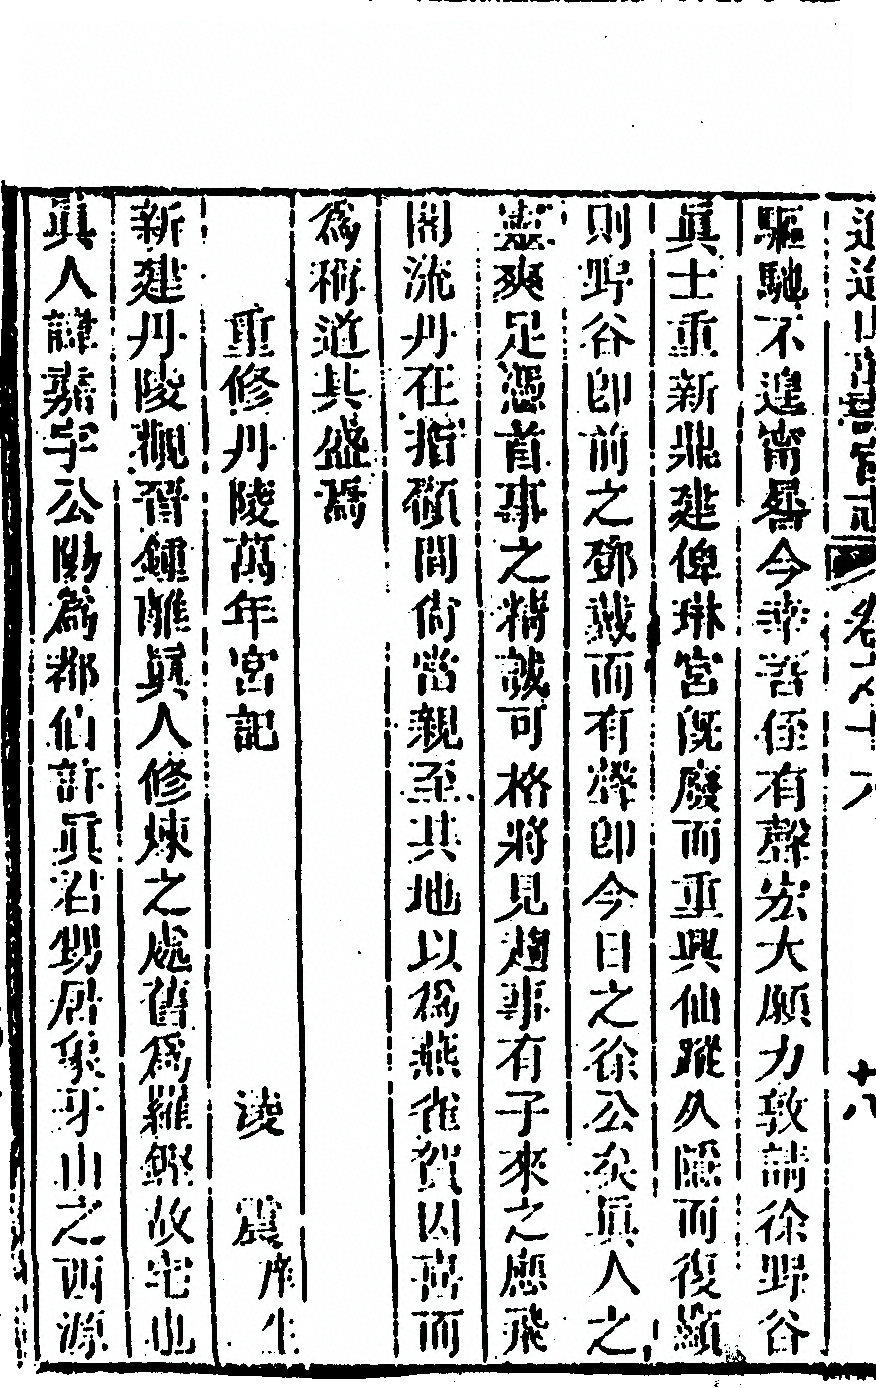 逍遙山萬壽宮志 卷之十八 十八
驅馳不遑甯晷今幸吾侄有聲宏大願力敦請徐野谷
眞士重新鼎建俾琳宮旣廢而重興仙蹤久隱而復顯
則野谷卽前之鄧戴而有聲卽今日之徐公矣眞人之
靈爽足憑首事之精誠可格將見趨事有子來之應飛
閣流丹在指顧間尙當親至其地以爲燕雀賀因喜而
爲術道其盛焉
重修丹陵萬年宮記 凌 震 庠生
新建丹陵觀晉鍾離眞人修煉之處舊爲羅鏗故宅也
眞人諱嘉字公陽爲都伯許眞君甥居象牙山之西源